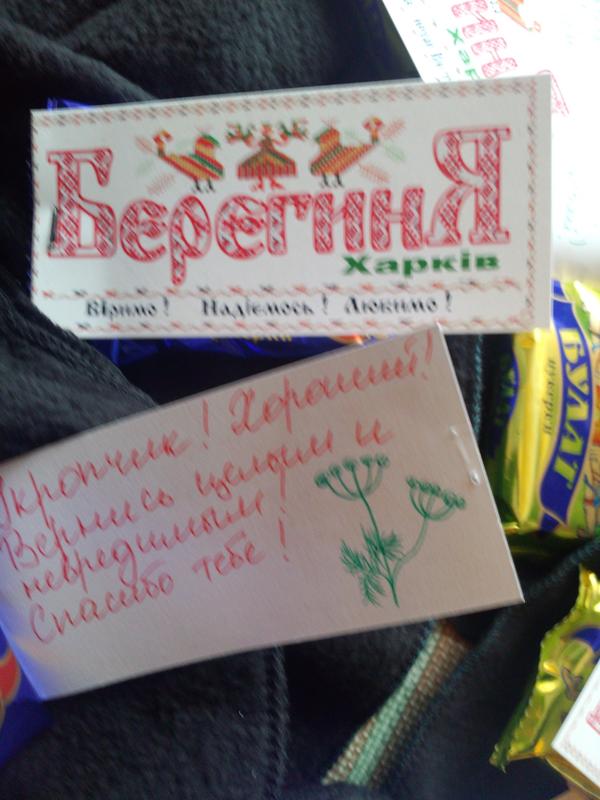 Берегиня
Харків
Віримо! Надіємось! Любимо!
Укропчик! Хороший!
Вернись целым и
невредимым!
Спасибо тебе!
БУЛАТ
цукерки